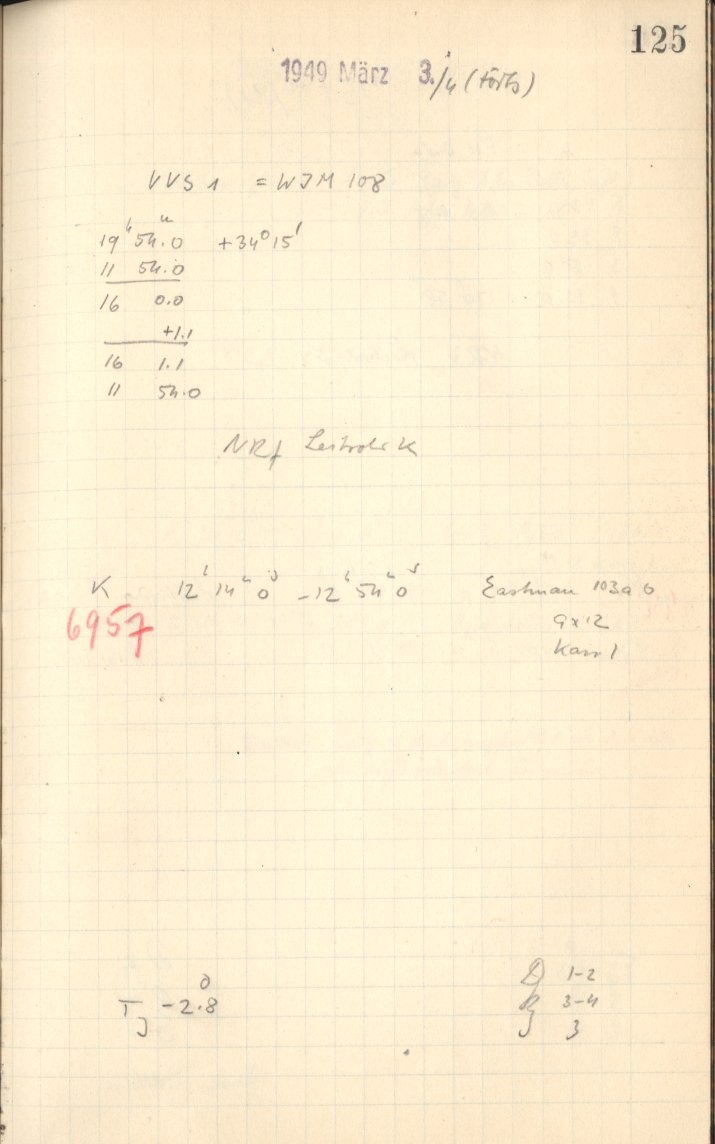 125
1949 März 3./4 (Forts)
VVS 1 = WJM 108
19ʰ 54.0ᵐ +34° 15'
11 54.0
16 0.0
+1.1
16 1.1
11 54.0
NRf Leitrohr K
K 12ʰ 14ᵐ 0ˢ – 12ʰ 54ᵐ 0ˢ Eastman 103a O
6957 9x12
Kass 1
D 1-2
T_J -2.8° R 3-4
J 3